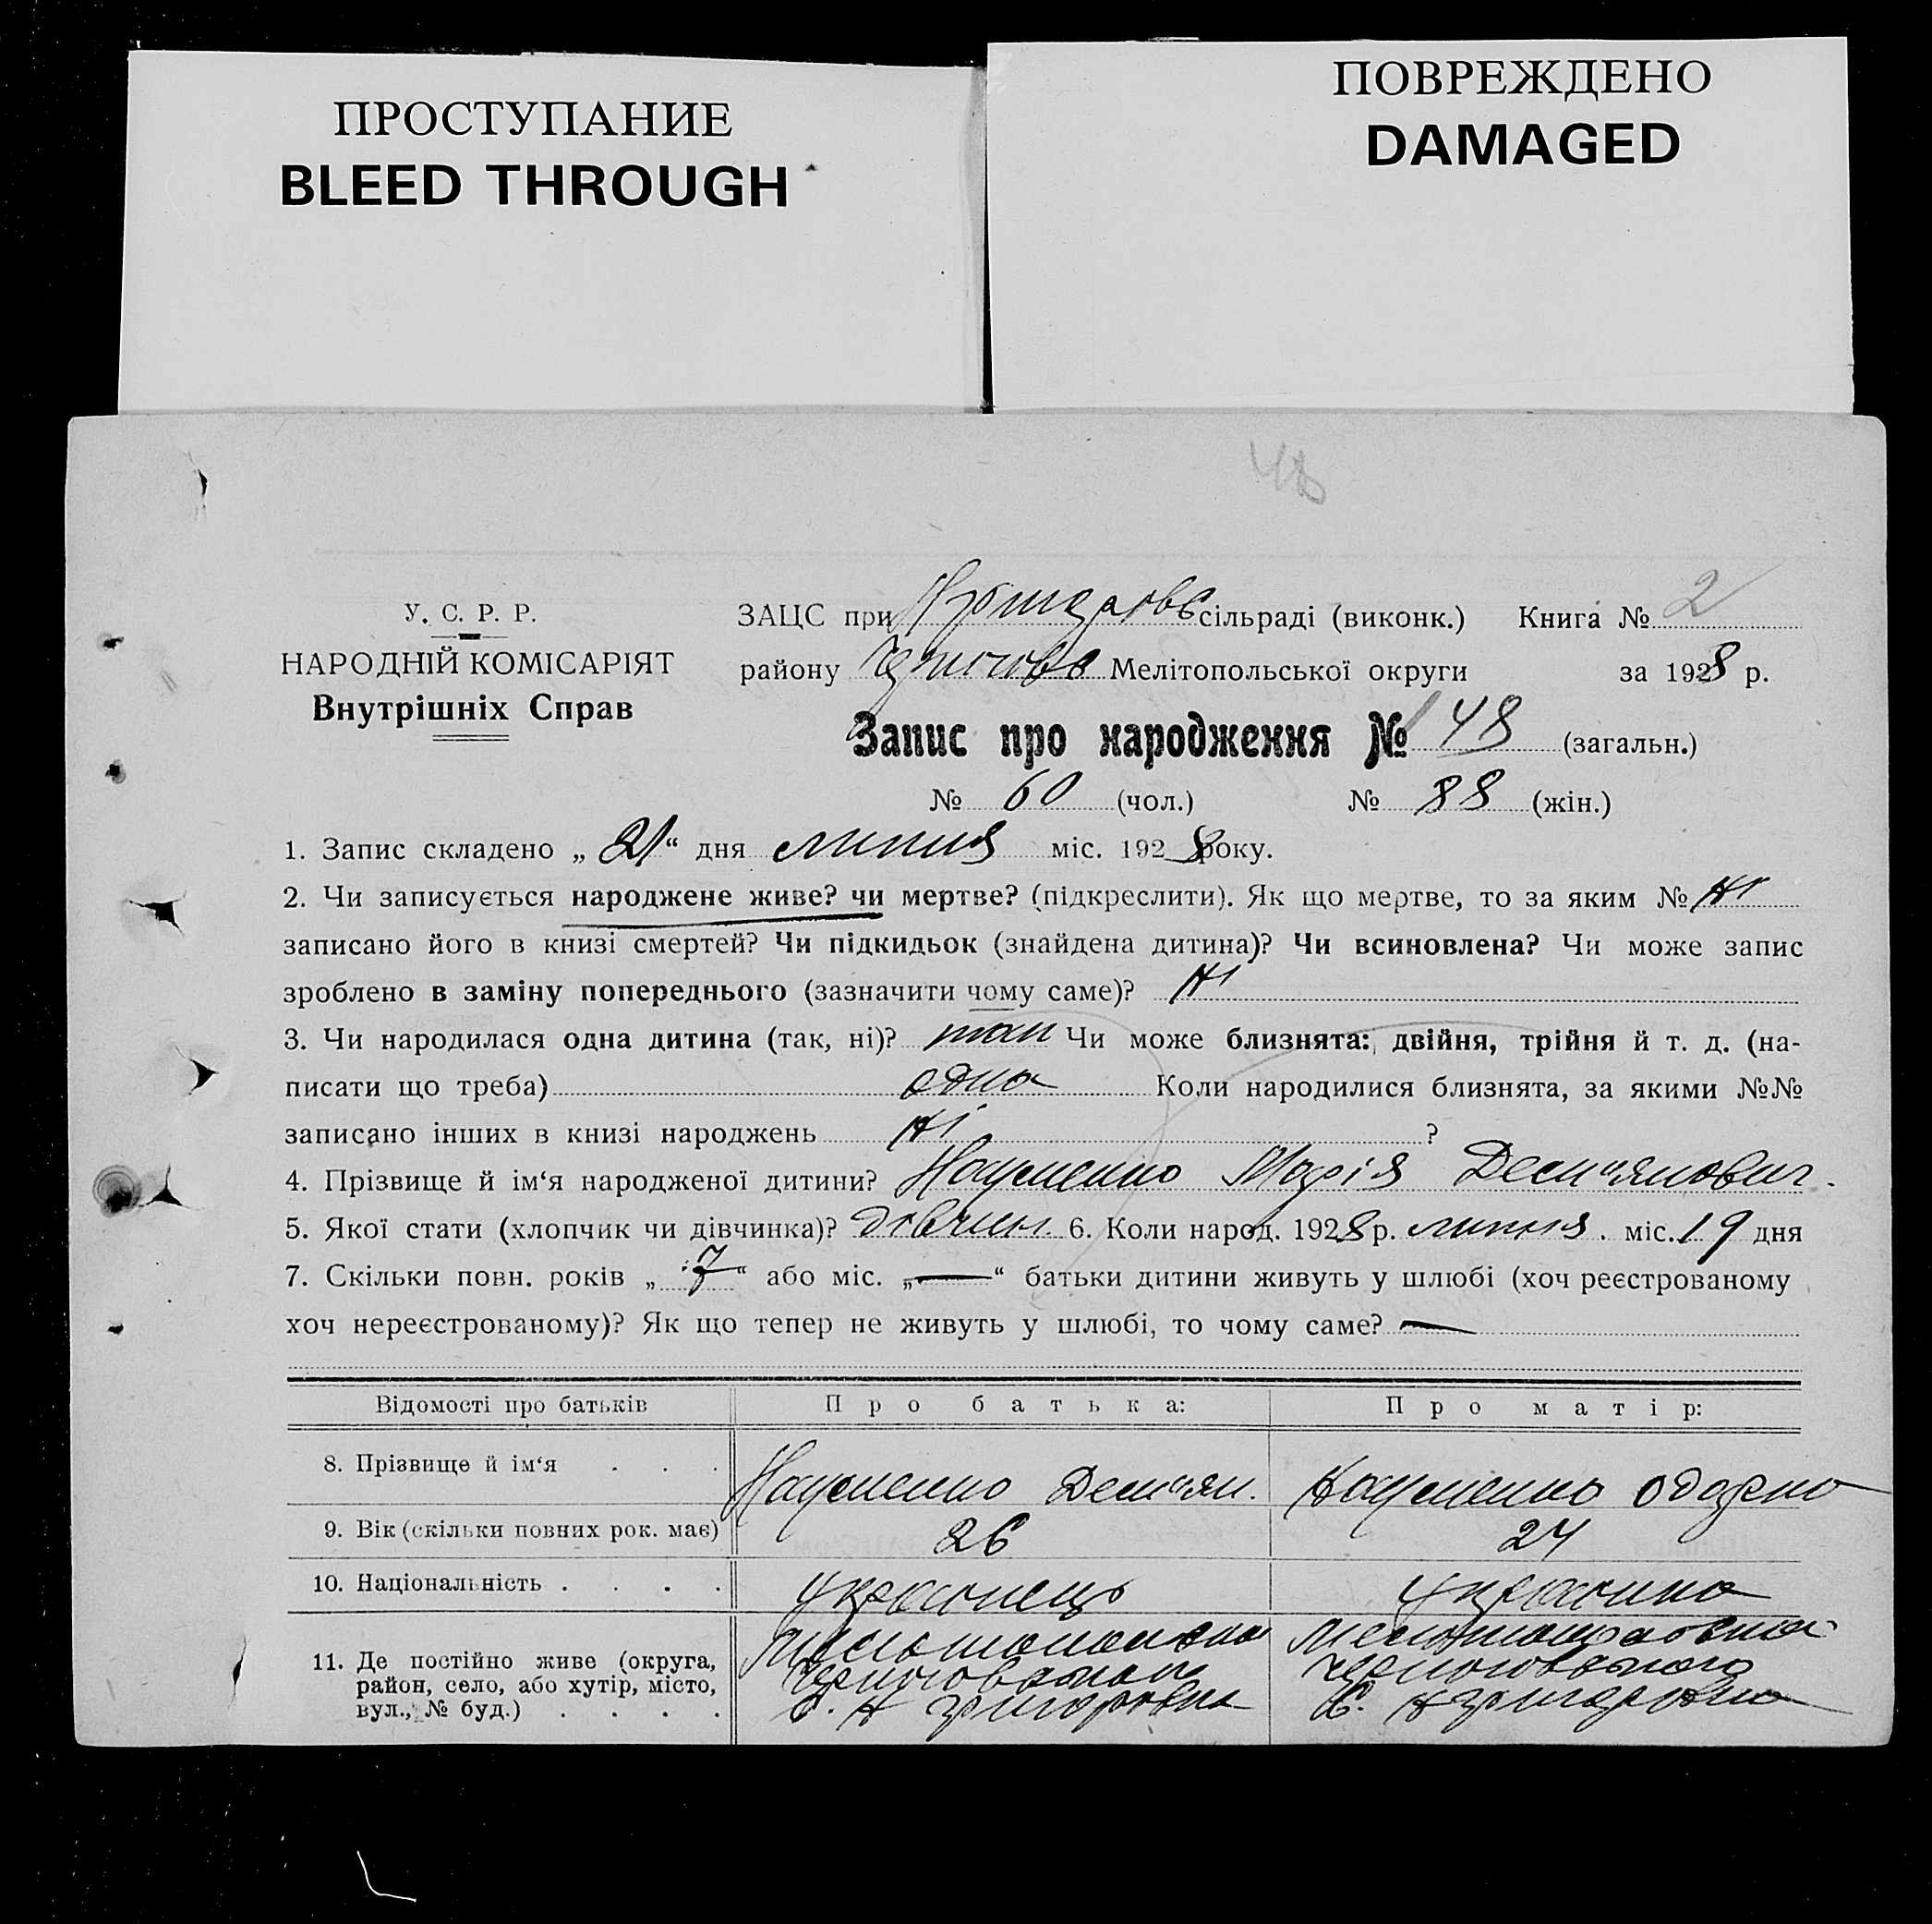 ПРОСТУПАНИЕ
BLEED THROUGH
ПОВРЕЖДЕНО
DAMAGED
48
У. С. Р. Р.
НАРОДНІЙ КОМІСАРІЯТ
Внутрішніх Справ
ЗАЦС при сільраді (виконк.) Книга № 2
району Мелітопольської округи за 1928 р.
Запис про народження № 148 (загальн.)
№ 60 (чол.) № 88 (жін.)
1. Запис складено „ 21 “ дня липня міс. 1928 року.
2. Чи записується народжене живе? чи мертве? (підкреслити). Як що мертве, то за яким № ні
записано його в книзі смертей? Чи підкидьок (знайдена дитина)? Чи всиновлена? Чи може запис
зроблено в заміну попереднього (зазначити чому саме)? ні
3. Чи народилася одна дитина (так, ні)? так Чи може близнята: двійня, трійня й т. д. (на-
писати що треба) одна Коли народилися близнята, за якими №№
записано інших в книзі народжень ні ?
4. Прізвище й ім‘я народженої дитини? Науменко Марія Дем‘янович.
5. Якої стати (хлопчик чи дівчинка)? дівчин. 6. Коли народ. 1928 р. липня. міс. 19 дня
7. Скільки повн. років „ 7 “ або міс. „ — “ батьки дитини живуть у шлюбі (хоч реєстрованому
хоч нереєстрованому)? Як що тепер не живуть у шлюбі, то чому саме? —
Відомості про батьків Про батька: Про матір:
8. Прізвище й ім‘я . . . Науменко Дем‘ян. Науменко Одарка
9. Вік (скільки повних рок. має) 26 24
10. Національність . . . . українець українка
11. Де постійно живе (округа,
район, село, або хутір, місто,
вул., № буд.) . . . .